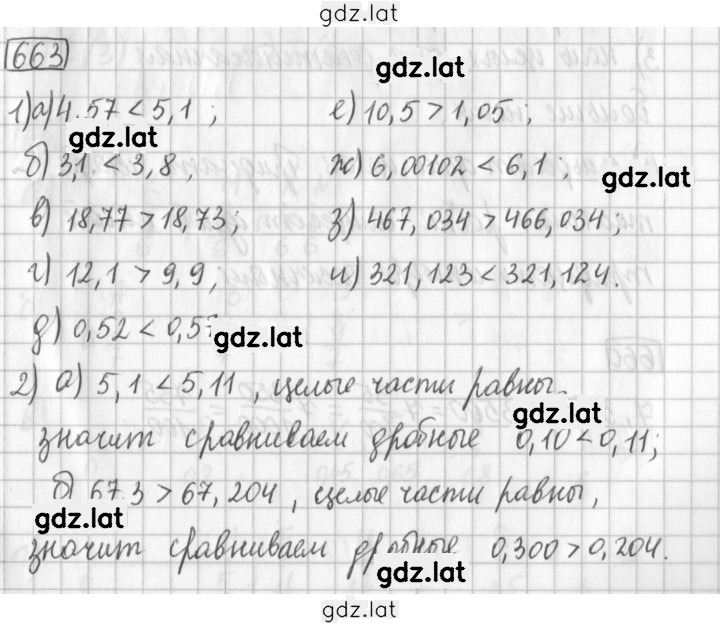 gdz.lat
663
gdz.lat
1) а) 4,57 < 5,1 ; е) 10,5 > 1,05 ;
gdz.lat
б) 3,1 < 3,8 ; ж) 6,00102 < 6,1 ;
gdz.lat
в) 18,77 > 18,73 ; з) 467,034 > 466,034 ;
г) 12,1 > 9,9 ; и) 321,123 < 321,124.
д) 0,52 < 0,5
gdz.lat
2) а) 5,1 < 5,11 , целые части равны
gdz.lat
значит сравниваем дробные 0,10 < 0,11 ;
б) 67,3 > 67,204 , целые части равны,
gdz.lat
значит сравниваем дробные 0,300 > 0,204.
gdz.lat
gdz.lat